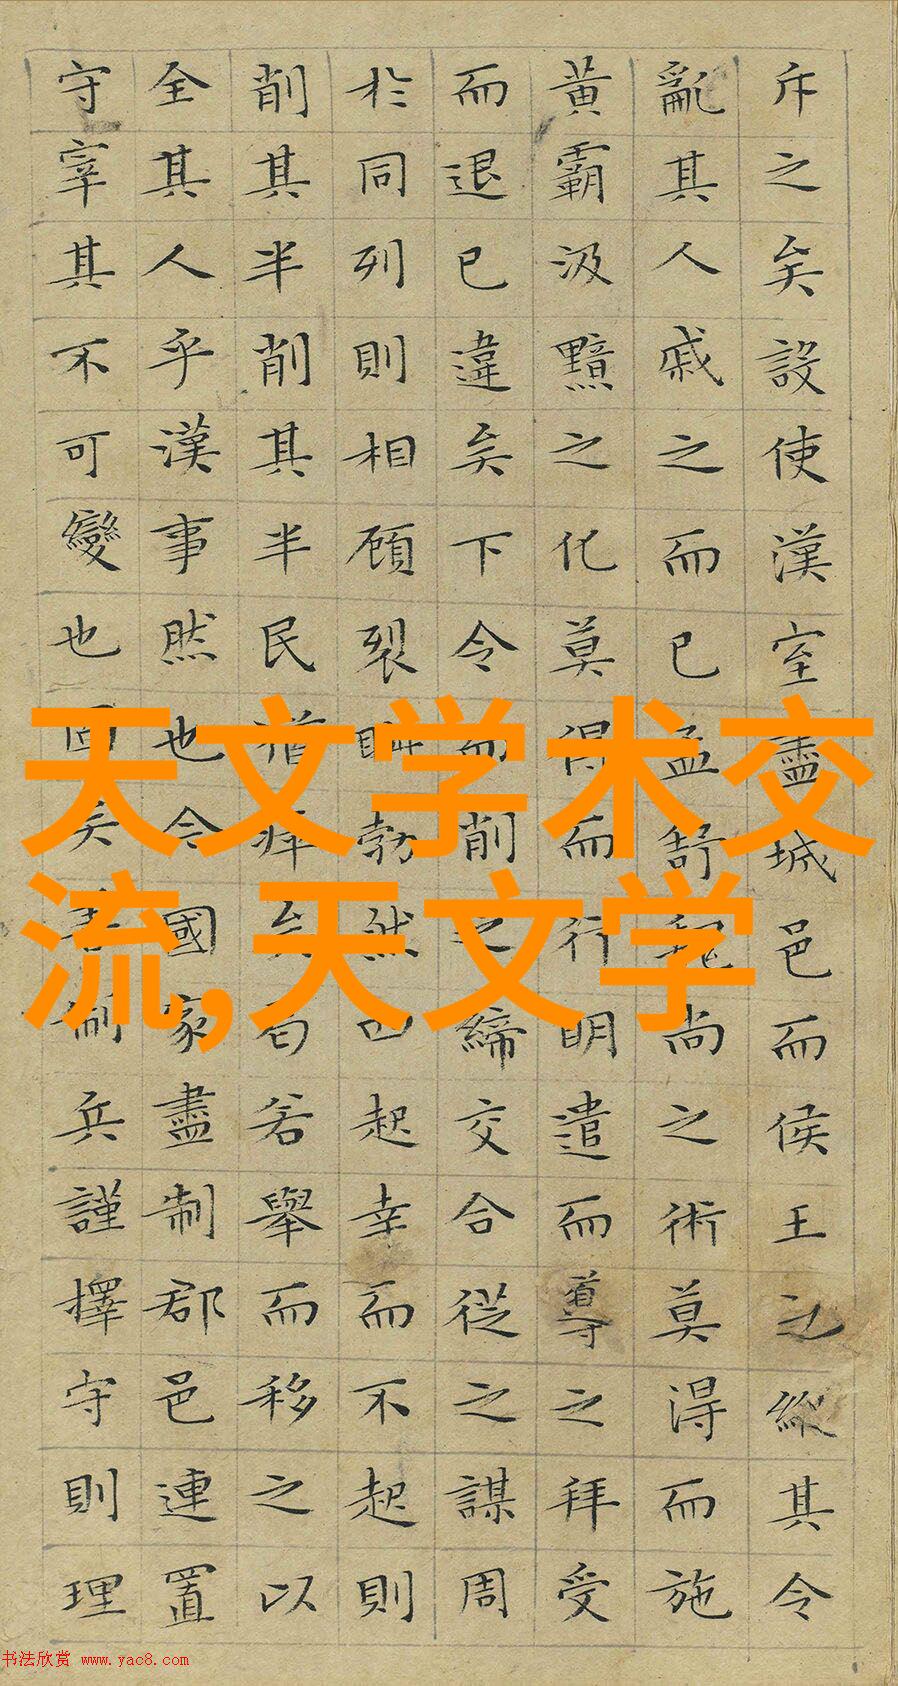 斥之矣設使漢室盡城邑而侯王之縱其令
亂其人戚之而已孟舒魏尚之術莫得而施
黃霸汲黯之化莫得而行明遣而導之拜受
而退已違矣下令而削之締交合從之謀周
於同列則相顧裂眦勃然已起幸而不起則
削其半削其半民猶瘁矣曷若舉而移之以
全其人乎漢事然也今國家盡制郡邑連置
守宰其不可變也固矣善制兵謹擇守則理
天文学术交
流,天文学
书法欣赏 www.yac8.com